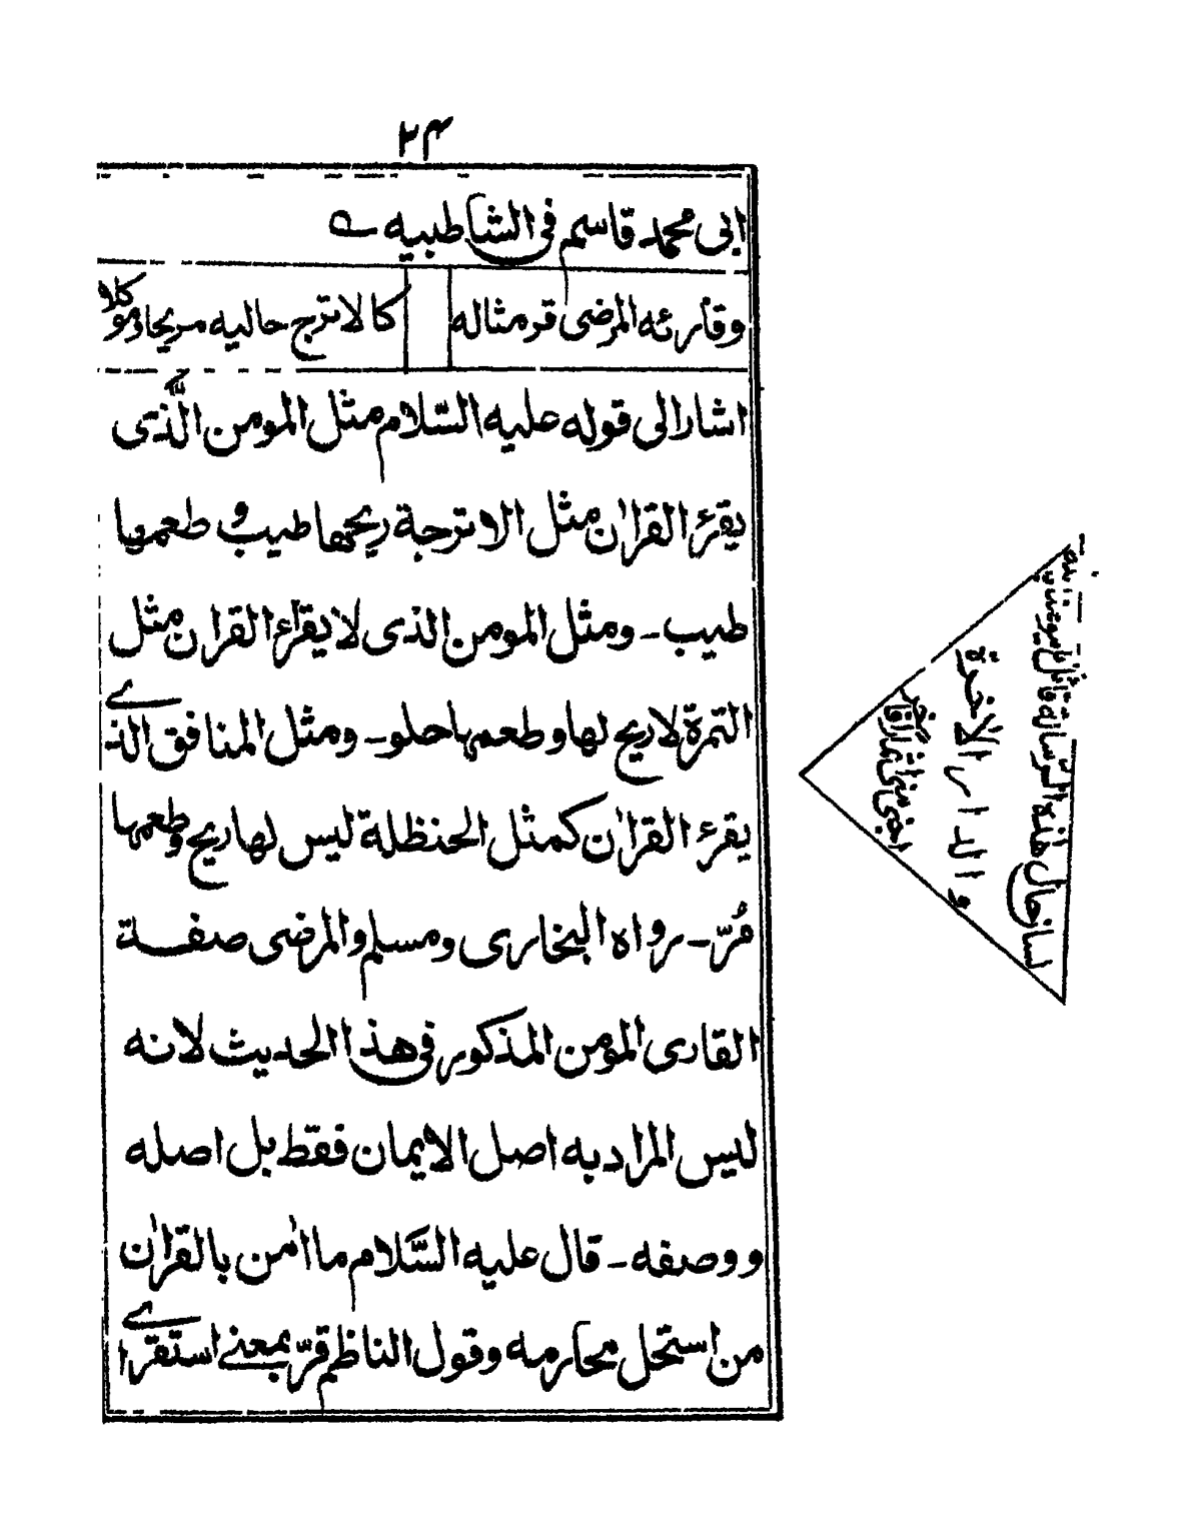 ۲۴
ابی محمد قاسم فی الشاطبیه
وقارئه المرضی قر مثاله کالاترج حالیه مریحا وموکلا
اشار الی قوله علیه السّلام مثل المومن الَّذی
یقرئ القراٰن مثل الاترجة ریحها طیب و طعمها
طیب۔ ومثل المومن الذی لا یقراء القراٰن مثل
التمرة لا ریح لها وطعمها حلو۔ ومثل المنافق الذے
یقرئ القراٰن کمثل الحنظلة لیس لها ریح وطعمها
مُرّ۔ رواه البخاری ومسلم والمرضی صفة
القاری المومن المذکور فی هذا الحدیث لانه
لیس المراد به اصل الایمان فقط بل اصله
ووصفه۔ قال علیه السَّلام ما اٰمن بالقراٰن
من استحل محارمه وقول الناظم قرّ بمعنے استقرا
والدار الاخرة